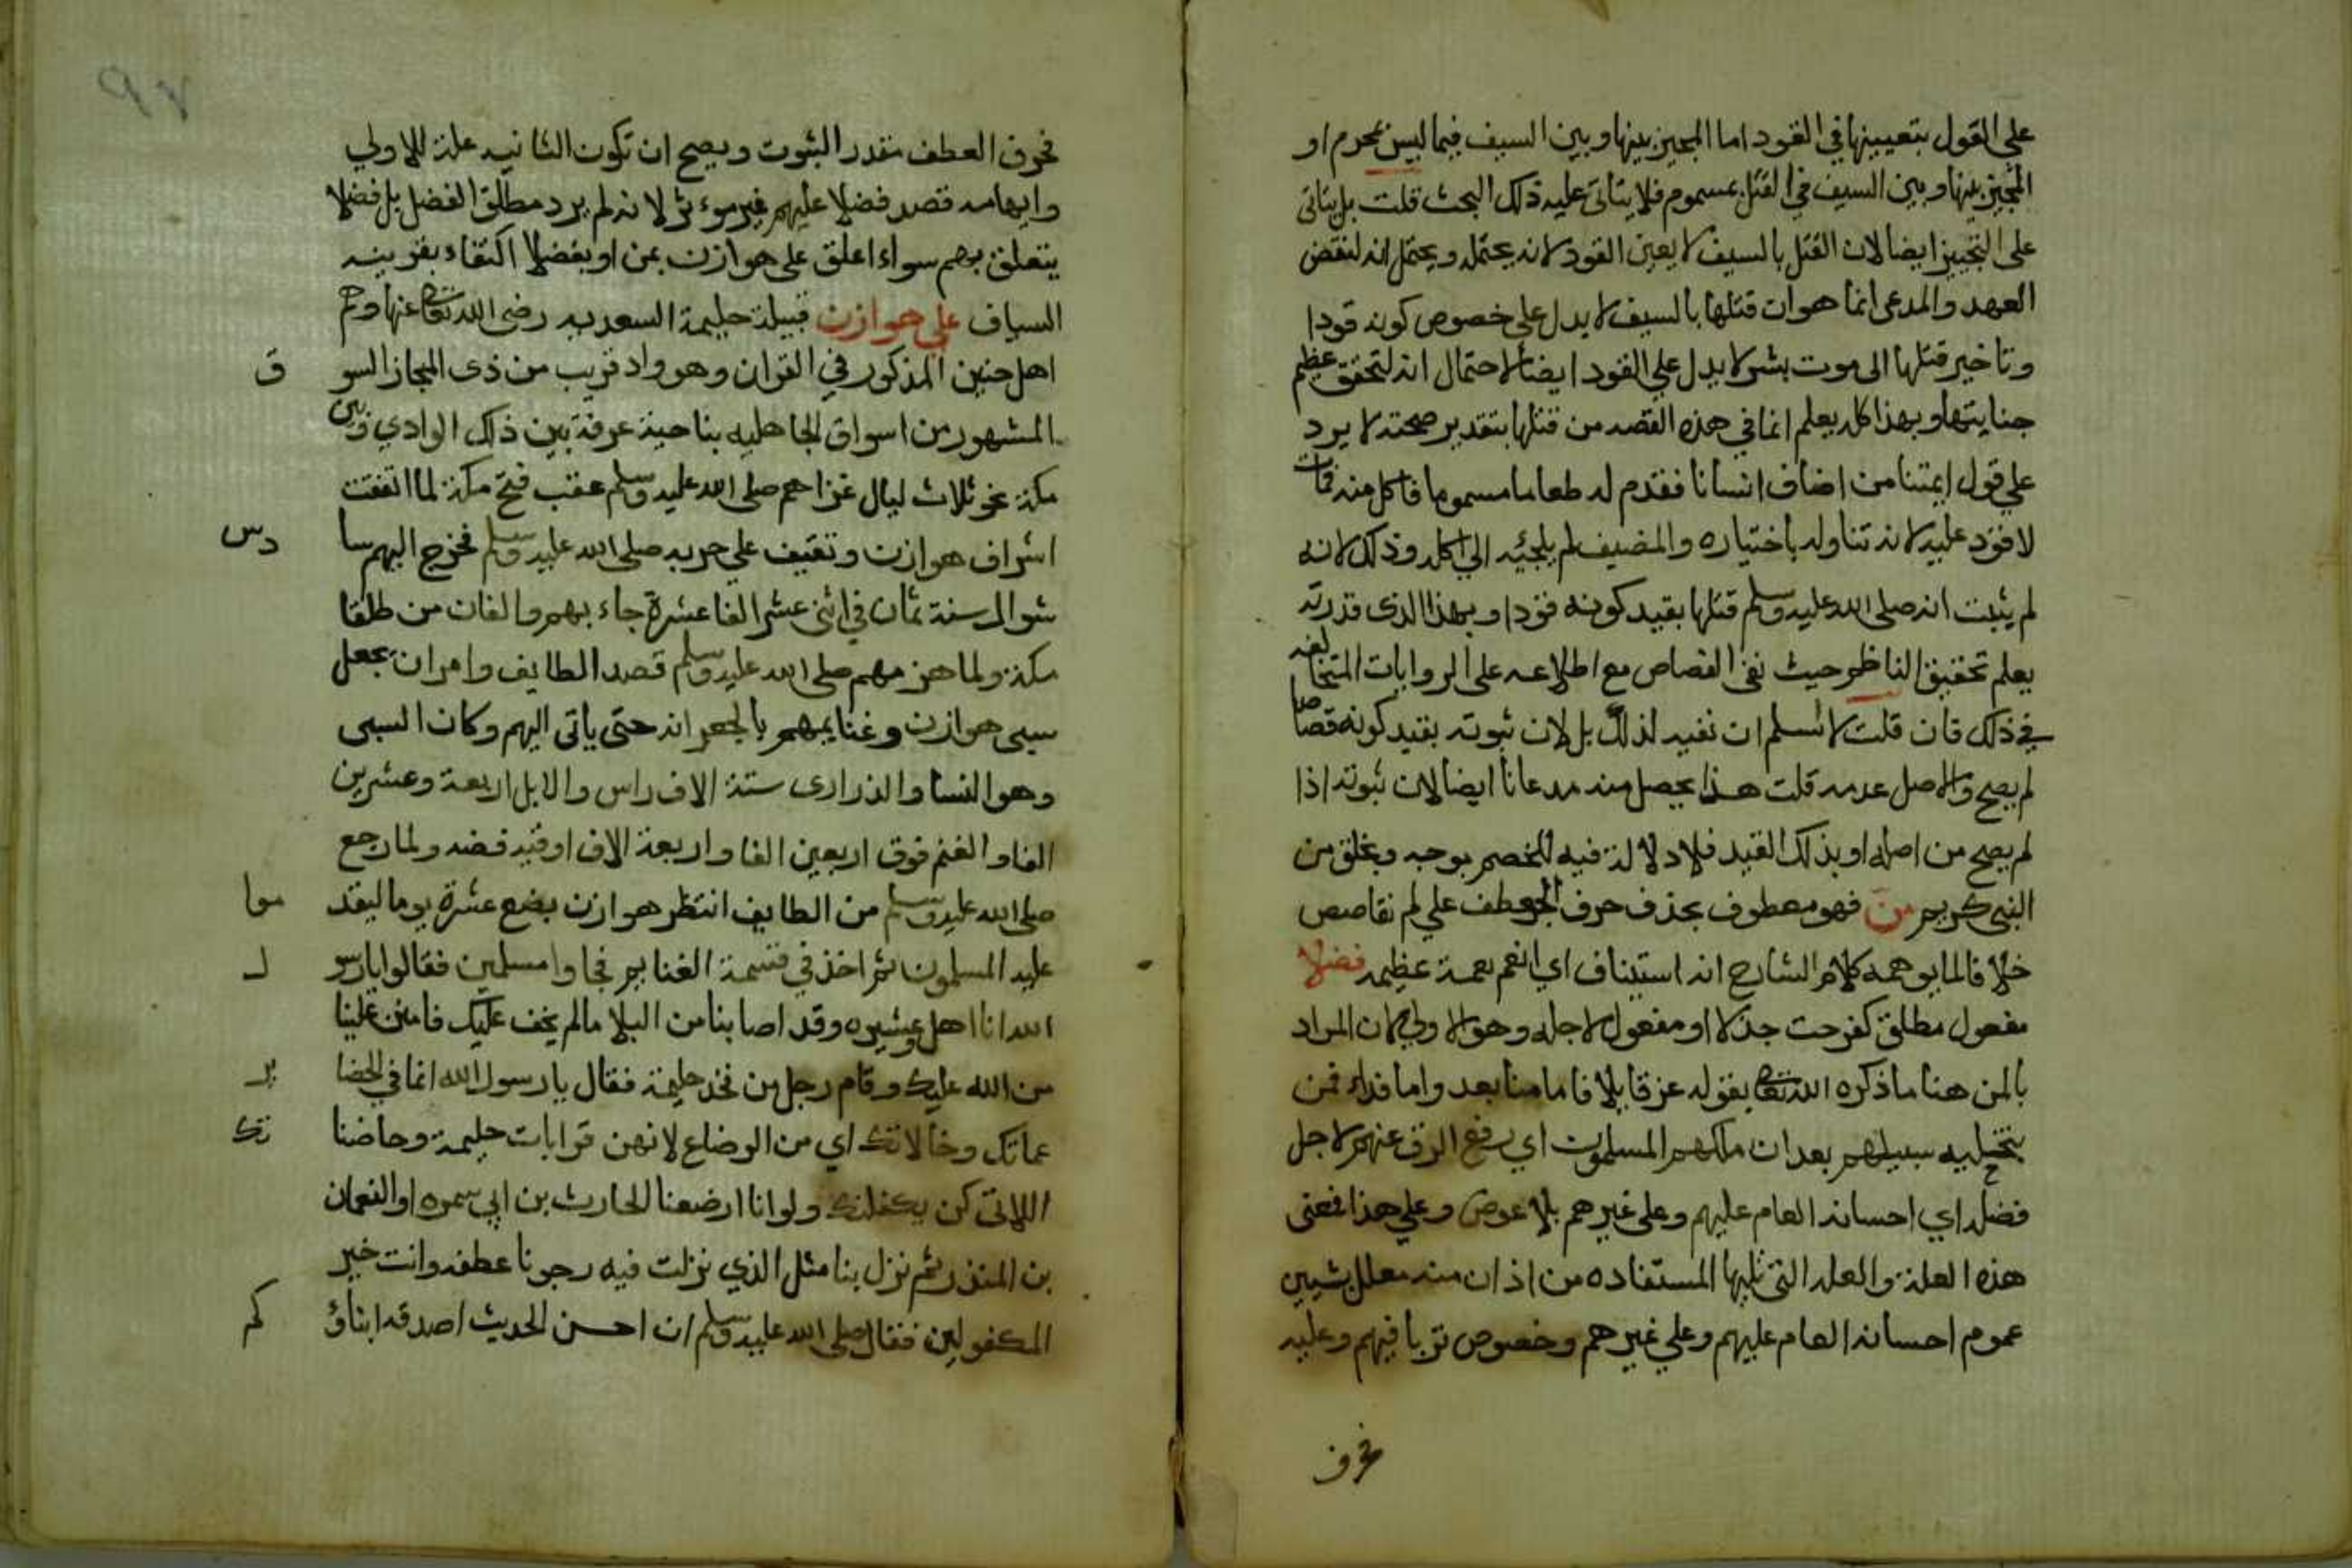 على القول بتعيينها في القود اما المجيز بينها وبين السيف فيما ليس بمحرم او
المجيز بينها وبين السيف في القتل بمسموم فلا يتاتى عليه ذلك البحث قلت بل يتاتى
على التجيز ايضا لان القتل بالسيف لا يعين القود لانه يحتمله ويحتمل انه لنقض
العهد والمدعى انما هو ان قتلها بالسيف لا يدل على خصوص كونه قودا
وتاخير قتلها الى موت بشر لا يدل على القود ايضا لاحتمال انه لتحقق عظم
جنايتها وبهذا كله يعلم انما في هذه القصه من قتلها بتقدير صحته لا يرد
على قول ايمتنا من اضاف انسانا فقدم له طعاما مسموما فاكل منه فمات
لا قود عليه لانه تناوله باختياره والمضيف لم يلجئه الى اكله وذلك لانه
لم يثبت انه صلى الله عليه وسلم قتلها بقيد كونه قودا وبهذا الذى قدرته
يعلم تحقيق الناظم حيث نفى القصاص مع اطلاعه على الروايات المتخالفه
في ذلك فان قلت لا نسلم ان نفيه لذلك بل لان ثبوته بقيد كونه قصاصا
لم يصح والاصل عدمه قلت هذا يحصل منه مدعانا ايضا لان ثبوته اذا
لم يصح من اصله او بذلك القيد فلا دلالة فيه للخصم بوجه وبخلق من
النبى كريم من فهو معطوف بحذف حرف العطف على لم تقاصص
خلافا لما يوهمه كلام الشارح انه استيناف اي انعم نعمة عظيمه فضلا
مفعول مطلق كفرحت جذلا او مفعول لاجله وهو الاولى لان المراد
بالمن هنا ما ذكره الله تعالى بقوله عز قايلا فاما منا بعد واما فداء فمن
بتخليه سبيلهم بعد ان ملكهم المسلمون اي برفع الرق عنهم لاجل
فضله اي احسانه العام عليهم وعلى غيرهم بلا عوض وعلى هذا فعنى
هذه العلة والعله التى تليها المستفاده من اذ ان منه معلل بشيين
عموم احسانه العام عليهم وعلى غيرهم وخصوص تربا فيهم وعليه
فحرف
فحرف العطف مقدر الثبوت ويصح ان تكون الثانيه علة للاولى
وايهامه قصد فضلا عليهم غير موءثر لانه لم يرد مطلق الفضل بل فضلا
يتعلق بهم سواء اعلق على هوازن بمن او بفضلا اكتفاء بقرينه
السياق على هوازن قبيلة حليمة السعديه رضى الله تعالى عنها وهم
اهل حنين المذكور في القران وهو واد قريب من ذى المجاز السو ق
المشهور من اسواق الجاهليه بناحية عرفة بين ذلك الوادي وبين
مكة نحو ثلاث ليال غزاهم صلى الله عليه وسلم عقب فتح مكة لما اتفقت
اشراف هوازن وثقيف على حربه صلى الله عليه وسلم فخرج اليهم سا دس
شوال سنة ثمان في اثنى عشر الفا عشرة جاء بهم والفان من طلقا
مكة ولما هزمهم صلى الله عليه وسلم قصد الطايف وامر ان يجعل
سبى هوازن وغنايمهم بالجعرانه حتى ياتى اليهم وكان السبى
وهو النسا والذرارى ستة الاف راس والابل اربعة وعشرين
الفا والغنم فوق اربعين الفا واربعة الاف اوقيه فضه ولما رجع
صلى الله عليه وسلم من الطايف انتظر هوازن بضع عشرة يوما ليقد موا
عليه المسلمون ثم اخذ في قسمة الغنايم فجاوا مسلمين فقالوا يارسو ل
الله انا اهل وعشيره وقد اصابنا من البلا ما لم يخف عليك فامنن علينا
من الله عليك وقام رجل من فخذ حليمة فقال يا رسول الله انما في الحضا ير
عماتك وخالاتك اي من الرضاع لانهن قرابات حليمة وحاضنا تك
اللاتى كن يكفلنك ولو انا ارضعنا الحارث بن ابي سمره او النعمان
بن المنذر ثم نزل بنا مثل الذي نزلت فيه رجونا عطفه وانت خير
المكفولين فقال صلى الله عليه وسلم ان احسن الحديث اصدقه ابناؤ كم